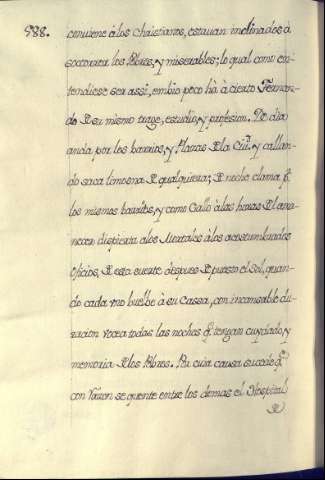 588.
combiene à los Christianos, estavan inclinados à
socorrer los Pobres, y miserables; lo qual como en-
tendiese ser assi, embio poco hà à cierto Fernan-
do de su mismo trage, estudio, y profesion. De dia
anda por los barrios, y Plazas de la Ciud. y callan-
do saca limosna de qualquiera; de noche clama pr.
los mismos barrios, y como Gallo à las horas del ama-
necer dispierta alos Mortales à los acostumbrados
oficios, de esta suerte despues de puesto el Sol, quan-
do cada vno buelbe à su Cassa, con incansable du-
racion vocea todas las noches q. tengan cuydado, y
memoria de los Pobres. Pa cuia causa sucede q.
con razon se quente entre los demas el Hospital
de